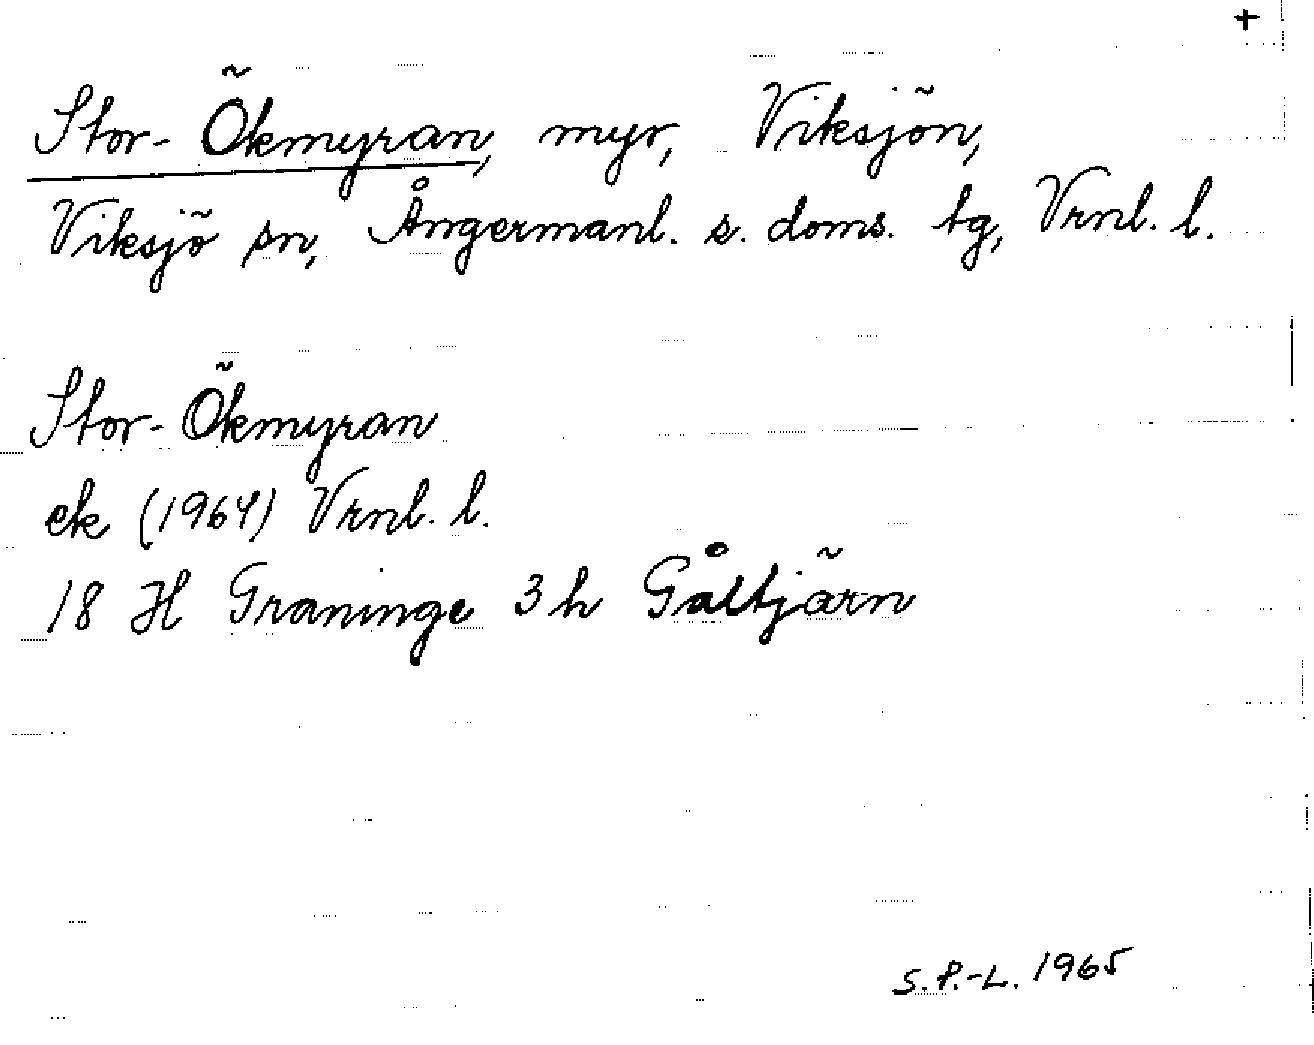 +
Stor-Ökmyran, myr, Viksjön,
Viksjö sn, Ångermanl. s. doms. tg, Vrnl. l.
Stor-Ökmyran
ek (1964) Vrnl. l.
18 H Graninge 3 h Gåltjärn
S.P.-L. 1965